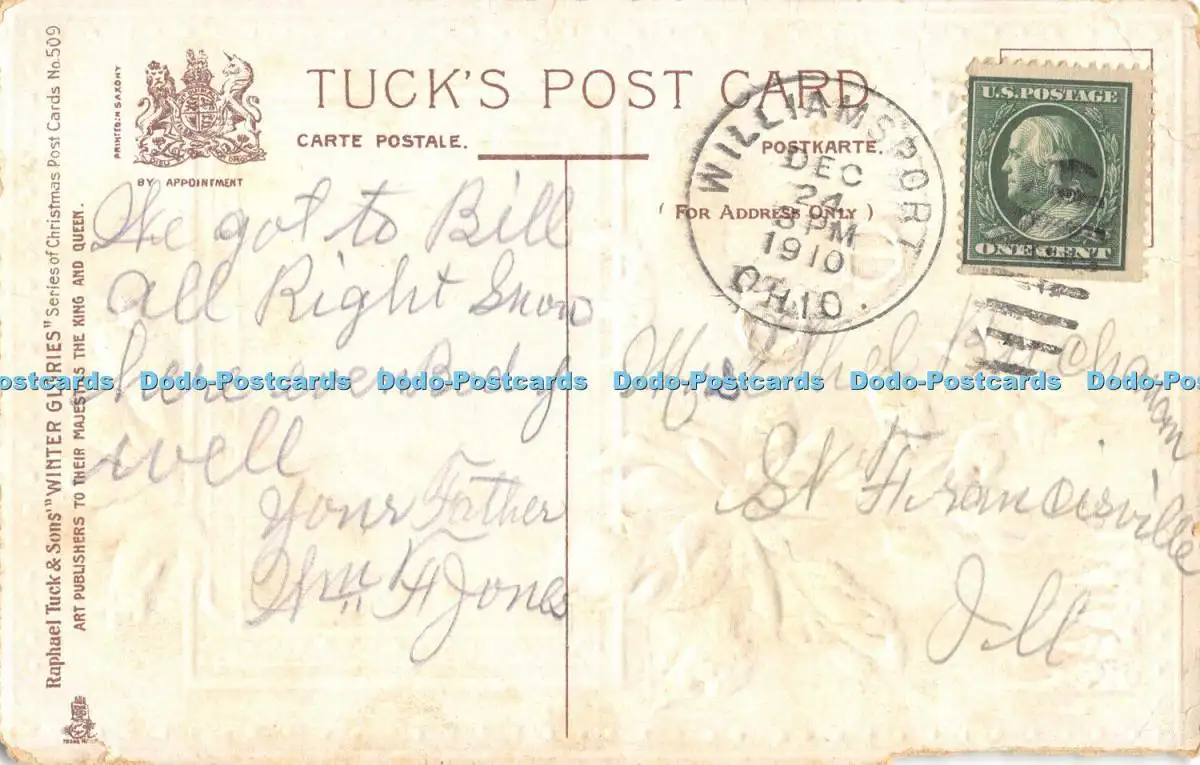 TUCK'S POST CARD
CARTE POSTALE.
POSTKARTE.
(FOR ADDRESS ONLY)
BY APPOINTMENT
PRINTED IN SAXONY
Raphael Tuck & Sons' "WINTER GLORIES" Series of Christmas Post Cards No. 509
ART PUBLISHERS TO THEIR MAJESTIES THE KING AND QUEEN.
We got to Bill
all Right Snow
here
well
Your Father
Wm H Jones
WILLIAMSPORT
DEC
24
3 PM
1910
OHIO.
U.S. POSTAGE
ONE CENT
St Francisville
Ill
Dodo-Postcards Dodo-Postcards Dodo-Postcards Dodo-Postcards Dodo-Postcards